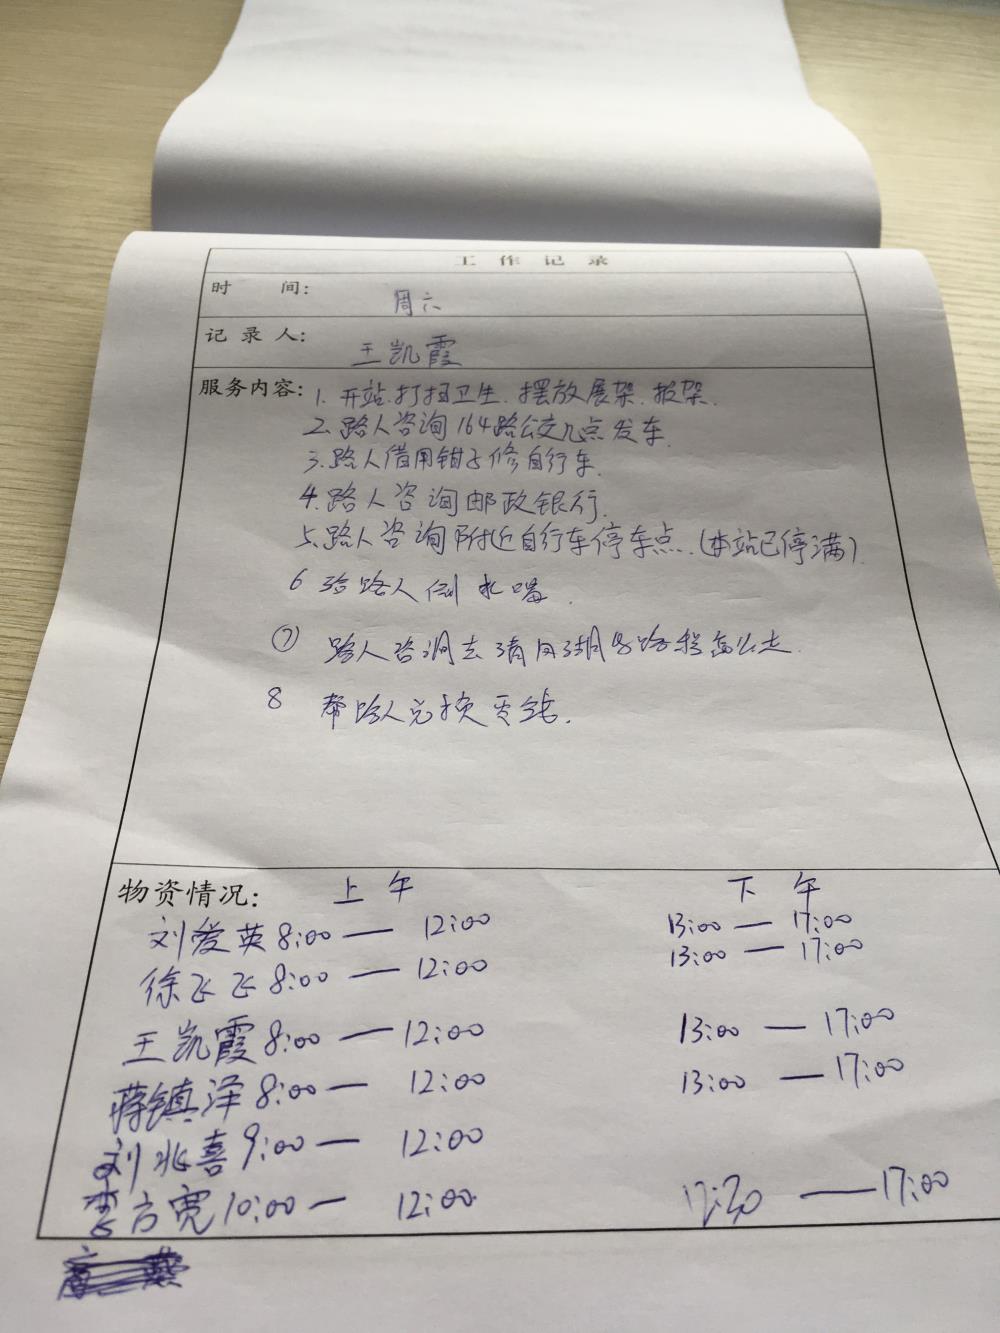 工作记录
时 间: 周六
记录人: 王凯霞
服务内容: 1. 开站.打扫卫生.摆放展架.报架.
2. 路人咨询164路公交几点发车.
3. 路人借用钳子修自行车.
4. 路人咨询邮政银行.
5. 路人咨询附近自行车停车点.(本站已停满)
6 给路人倒水喝.
⑦ 路人咨询去清月湖的路程怎么走.
8 帮路人兑换零钱.
物资情况: 上午 下午
刘爱英 8:00 — 12:00 13:00 — 17:00
徐飞飞 8:00 — 12:00 13:00 — 17:00
王凯霞 8:00 — 12:00 13:00 — 17:00
蒋镇泽 8:00 — 12:00 13:00 — 17:00
刘兆喜 9:00 — 12:00
李方宽 10:00 — 12:00 — 17:00